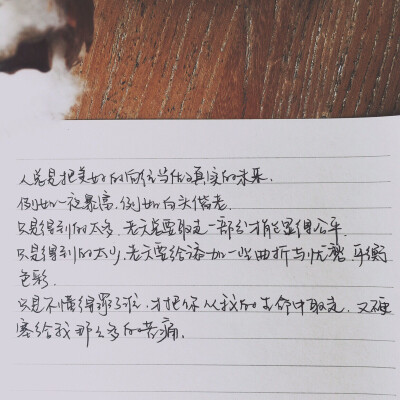 人总是把美好的向往当作真实的未来.
例如一夜暴富,例如白头偕老.
只是得到的太多,老天总要取走一部分才能显得公平.
只是得到的太少,老天要给添加一些曲折与忧愁,平衡
色彩.
只是不懂得罪了谁,才把你从我的生命中取走,又硬
塞给我那么多的苦痛.